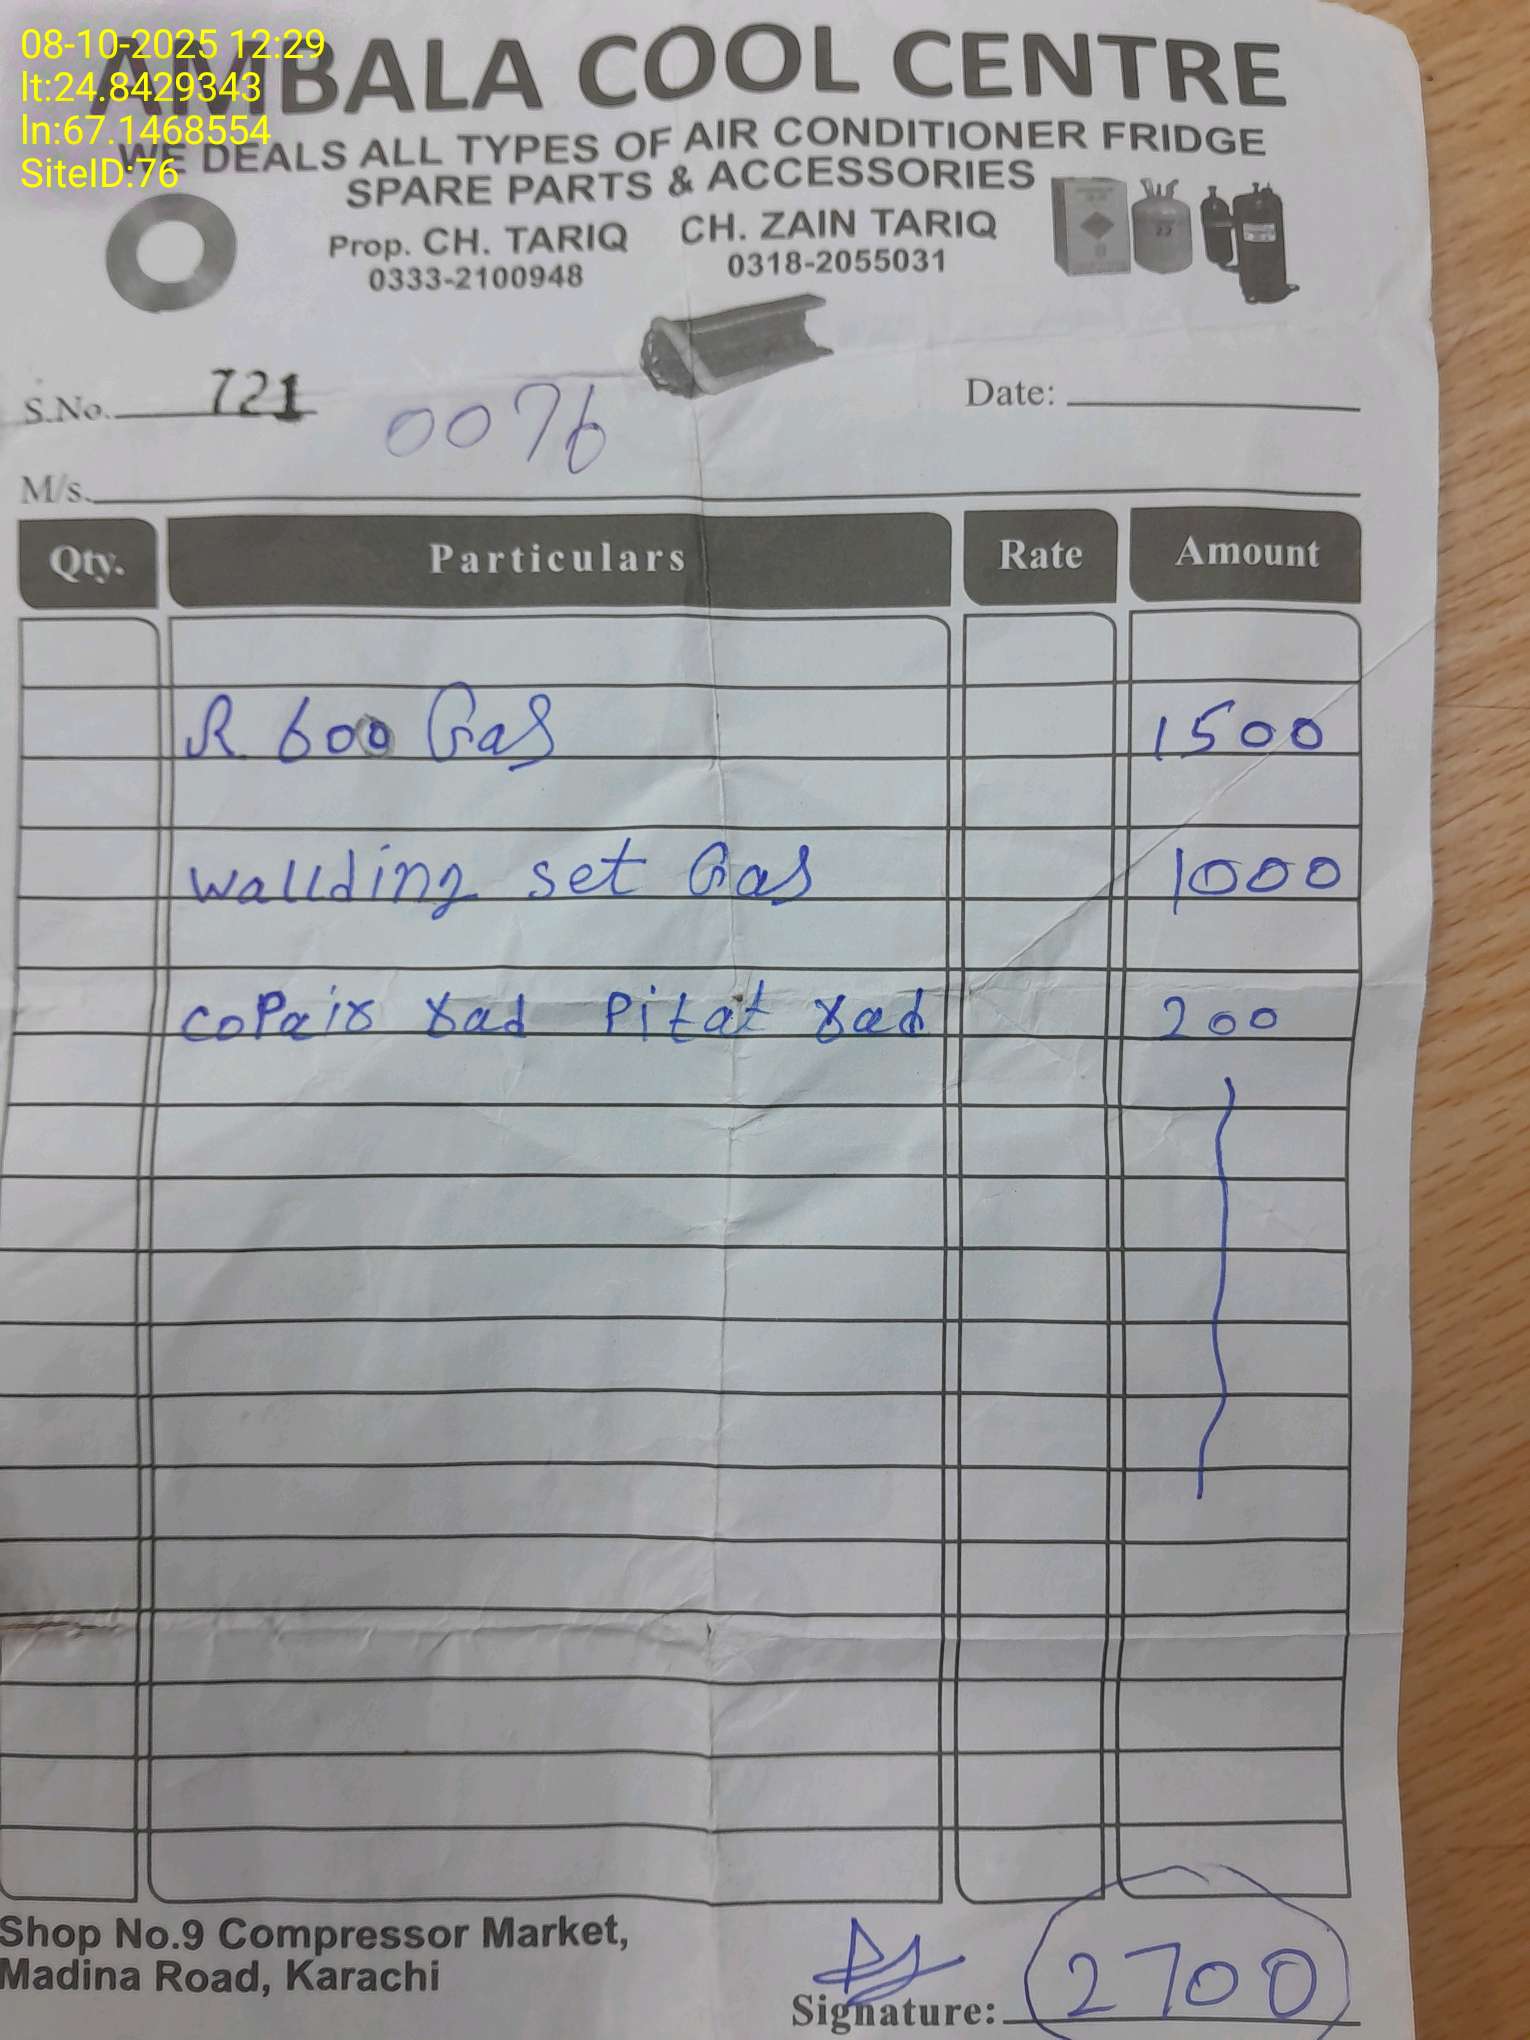 08-10-2025 12:29
lt:24.8429343
ln:67.1468554
SiteID:76
AMBALA COOL CENTRE
WE DEALS ALL TYPES OF AIR CONDITIONER FRIDGE
SPARE PARTS & ACCESSORIES
Prop. CH. TARIQ CH. ZAIN TARIQ
0333-2100948 0318-2055031
S.No. 721 0076 Date:
M/s.
Qty. Particulars Rate Amount
R 600 Gas 1500
wallding set Gas 1000
coPair rad Pitat rad 200
Shop No.9 Compressor Market,
Madina Road, Karachi
Signature: 2700